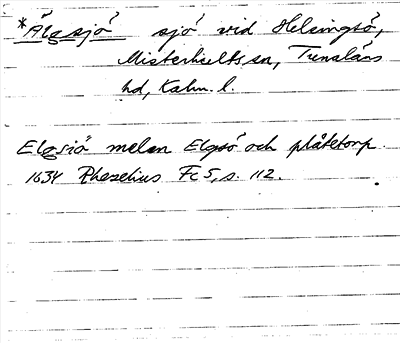 *Älgsjö sjö vid Helsingsö,
Misterhults sn, Tunaläns
hd, Kalm. l.
Elgsiö mellan Elgsö och plåtetorp
1634 Rhezelius Fc5, s. 112.